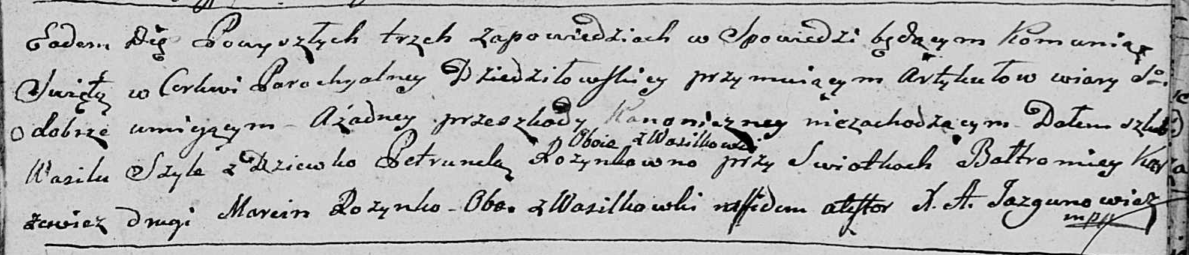 Eadem Die Powyszłych trzech zapowiedziach w Spowiedzi będącym Komunią
Swiętą w Cerkwi Parochyalney Dziedziłowskiey przymuiącym Artykułow wiary S.
dobrze umieącym. Ażadney przeszkody Kanoniczney niezachodzącym. Dałem szlub
Oboie z Wasilkowki
Wasilu Szyle z Dziewko Petrunelą Rozynkowno przy Swiatkach Bałtromiey Kar
żewicz drugi Marcin Rozynko Oba. z Wasilkowki in fidem attestor X. A. Jazgunowicz
mpp